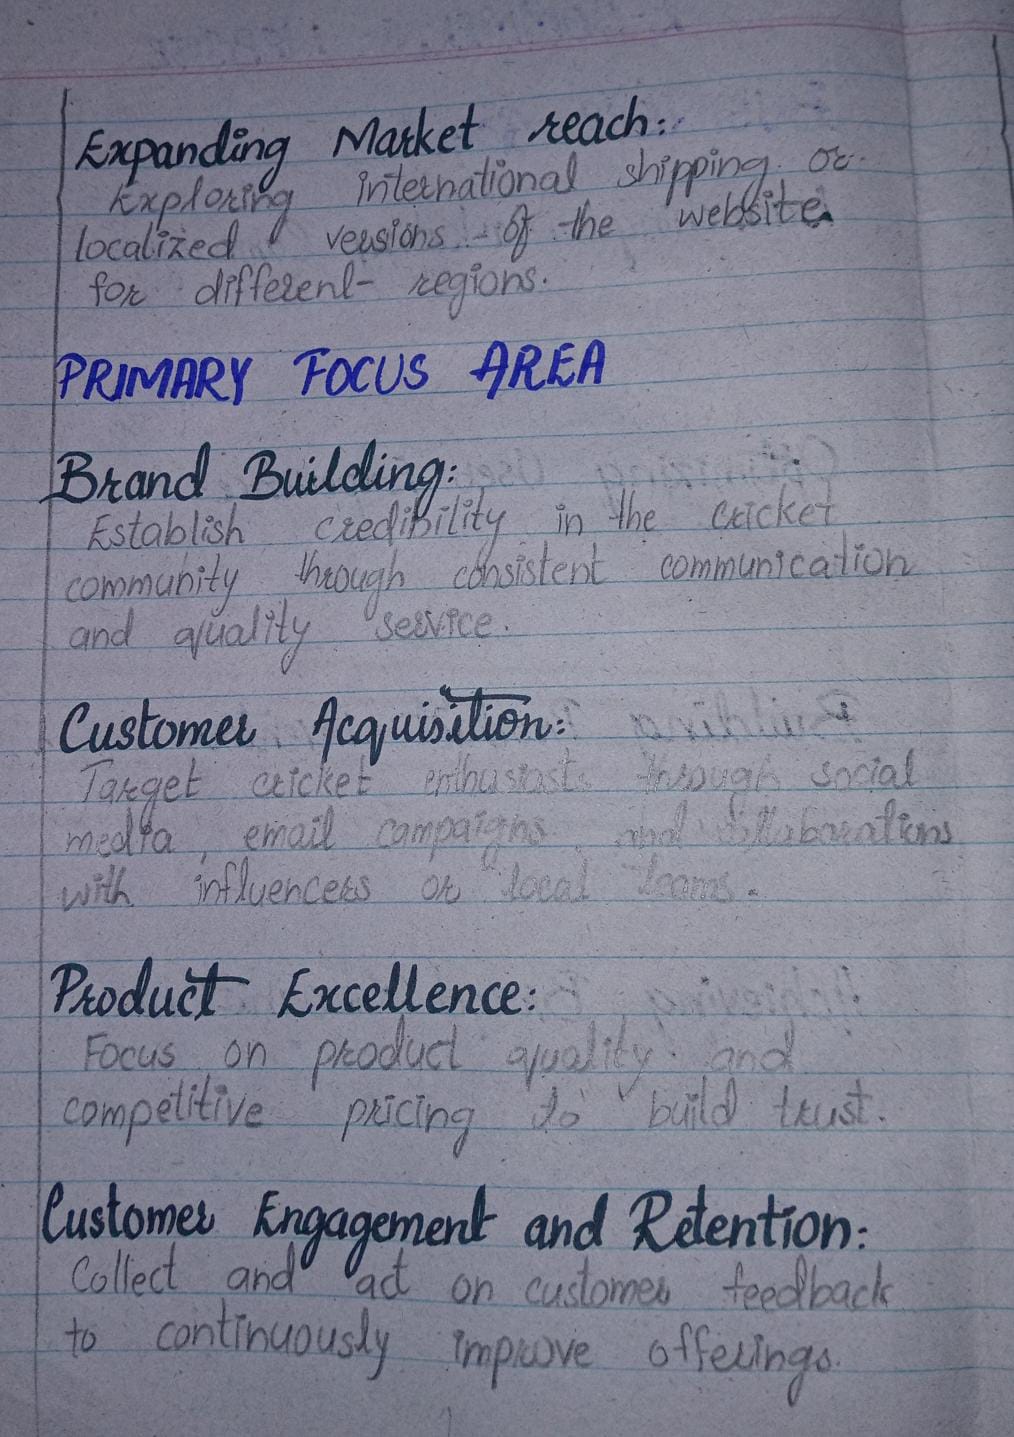 Expanding Market reach:
Exploring international shipping or
localized versions of the website
for different regions.
PRIMARY FOCUS AREA
Brand Building:
Establish credibility in the cricket
community through consistent communication
and quality service.
Customer Acquisition:
Target cricket enthusiasts through social
media, email campaigns, and collaborations
with influencers or local teams.
Product Excellence:
Focus on product quality and
competitive pricing to build trust.
Customer Engagement and Retention:
Collect and act on customer feedback
to continuously improve offerings.